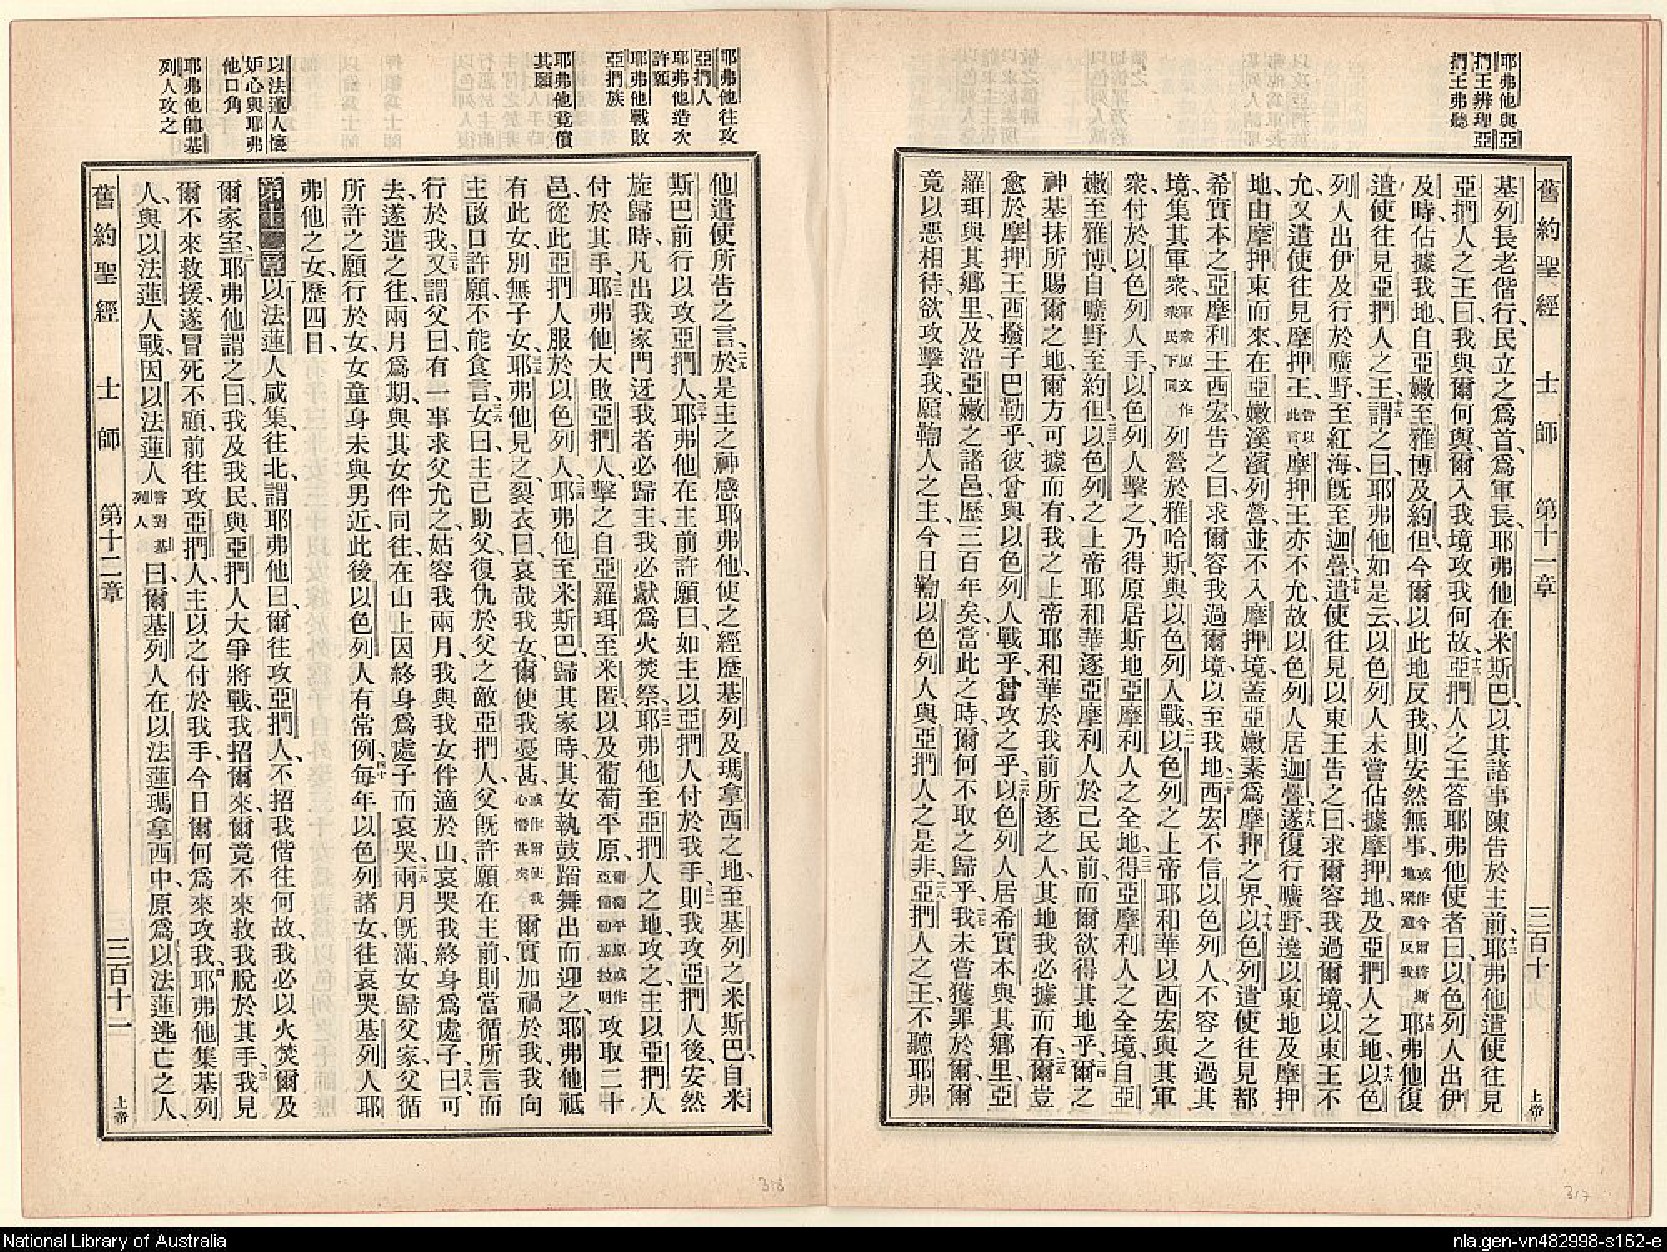 耶弗他與亞
捫王辨理亞
捫王弗聽
舊約聖經 士師 第十一章 三百十一 上帝
基列長老偕行、民立之爲首、爲軍長、耶弗他在米斯巴、以其諸事陳告於主前、耶弗他遣使往見
亞捫人之王曰、我與爾何與、爾入我境攻我何故、亞捫人之王答耶弗他使者曰、以色列人出伊
及時、佔據我地、自亞嫩至雅博及約但、今爾以此地反我、則安然無事、或作今爾當以斯地樂意反我 耶弗他復
遣使往見亞捫人之王、謂之曰、耶弗他如是云、以色列人未嘗佔據摩押地、及亞捫人之地、以色
列人出伊及、行於曠野、至紅海、旣至迦疊、遣使往見以東王、告之曰、求爾容我過爾境、以東王不
允、又遣使往見摩押王、皆以此言 摩押王亦不允、故以色列人居迦疊、遂復行曠野、遶以東地及摩押
地、由摩押東而來、在亞嫩溪濱列營、並不入摩押境、蓋亞嫩素爲摩押之界、以色列遣使往見都
希實本之亞摩利王西宏、告之曰、求爾容我過爾境、以至我地、西宏不信以色列人、不容之過其
境、集其軍衆、軍衆原文作衆民下同 列營於雅哈斯、與以色列人戰、以色列之上帝耶和華以西宏與其軍
衆、付於以色列人手、以色列人擊之、乃得原居斯地亞摩利人之全地、得亞摩利人之全境、自亞
嫩至雅博、自曠野至約但、以色列之上帝耶和華逐亞摩利人於己民前、而爾欲得其地乎、爾之
神基抹所賜爾之地、爾方可據而有、我之上帝耶和華於我前所逐之人、其地我必據而有、爾豈
愈於摩押王西撥子巴勒乎、彼曾與以色列人戰乎、曾攻之乎、以色列人居希實本與其鄉里、亞
羅珥與其鄉里、及沿亞嫩之諸邑、歷三百年矣、當此之時、爾何不取之歸乎、我未嘗獲罪於爾、爾
竟以惡相待、欲攻擊我、願鞫人之主、今日鞫以色列人與亞捫人之是非、亞捫人之王、不聽耶弗
317
耶弗他往攻
亞捫人
耶弗他造次
許願
耶弗他戰敗
亞捫族
耶弗他竟償
其願
以法蓮人懷
妒心與耶弗
他口角
耶弗他帥基
列人攻之
他遣使所告之言、於是主之神感耶弗他、使之經歷基列及瑪拿西之地、至基列之米斯巴、自米
斯巴前行、以攻亞捫人、耶弗他在主前許願曰、如主以亞捫人付於我手、則我攻亞捫人後、安然
旋歸時、凡出我家門迓我者、必歸主、我必獻爲火焚祭、耶弗他至亞捫人之地、攻之、主以亞捫人
付於其手、耶弗他大敗亞捫人、擊之自亞羅珥至米匿、以及葡萄平原、葡萄平原或作亞備勒基拉明 攻取二十
邑、從此亞捫人服於以色列人、耶弗他至米斯巴歸其家時、其女執鼓蹈舞、出而迎之、耶弗他祗
有此女、別無子女、耶弗他見之、裂衣曰、哀哉我女、爾使我憂甚、或作爾使我心悟甚矣 爾實加禍於我、我向
主啟口許願、不能食言、女曰、主已助父、復仇於父之敵亞捫人、父旣許願在主前、則當循所言而
行於我、又謂父曰、有一事求父允之、姑容我兩月、我與我女伴適於山、哀哭我終身爲處子、曰、可
去、遂遣之往、兩月爲期、與其女伴同往、在山上因終身爲處子而哀哭、兩月旣滿、女歸父家、父循
所許之願行於女、女童身未與男近、此後以色列人有常例、每年以色列諸女、往哀哭基列人耶
弗他之女、歷四日、
第十二章 以法蓮人咸集、往北、謂耶弗他曰、爾往攻亞捫人、不招我偕往何故、我必以火焚爾及
爾家室、耶弗他謂之曰、我及我民、與亞捫人大爭將戰、我招爾來、爾竟不來救我脫於其手、我見
爾不來救援、遂冒死不顧、前往攻亞捫人、主以之付於我手、今日爾何爲來攻我、耶弗他集基列
人、與以法蓮人戰、因以法蓮人 嘗對基列人 曰、爾基列人在以法蓮瑪拿西中、原爲以法蓮逃亡之人、
舊約聖經 士師 第十二章 三百十二 上帝
318
National Library of Australia
nla.gen-vn482998-s162-e